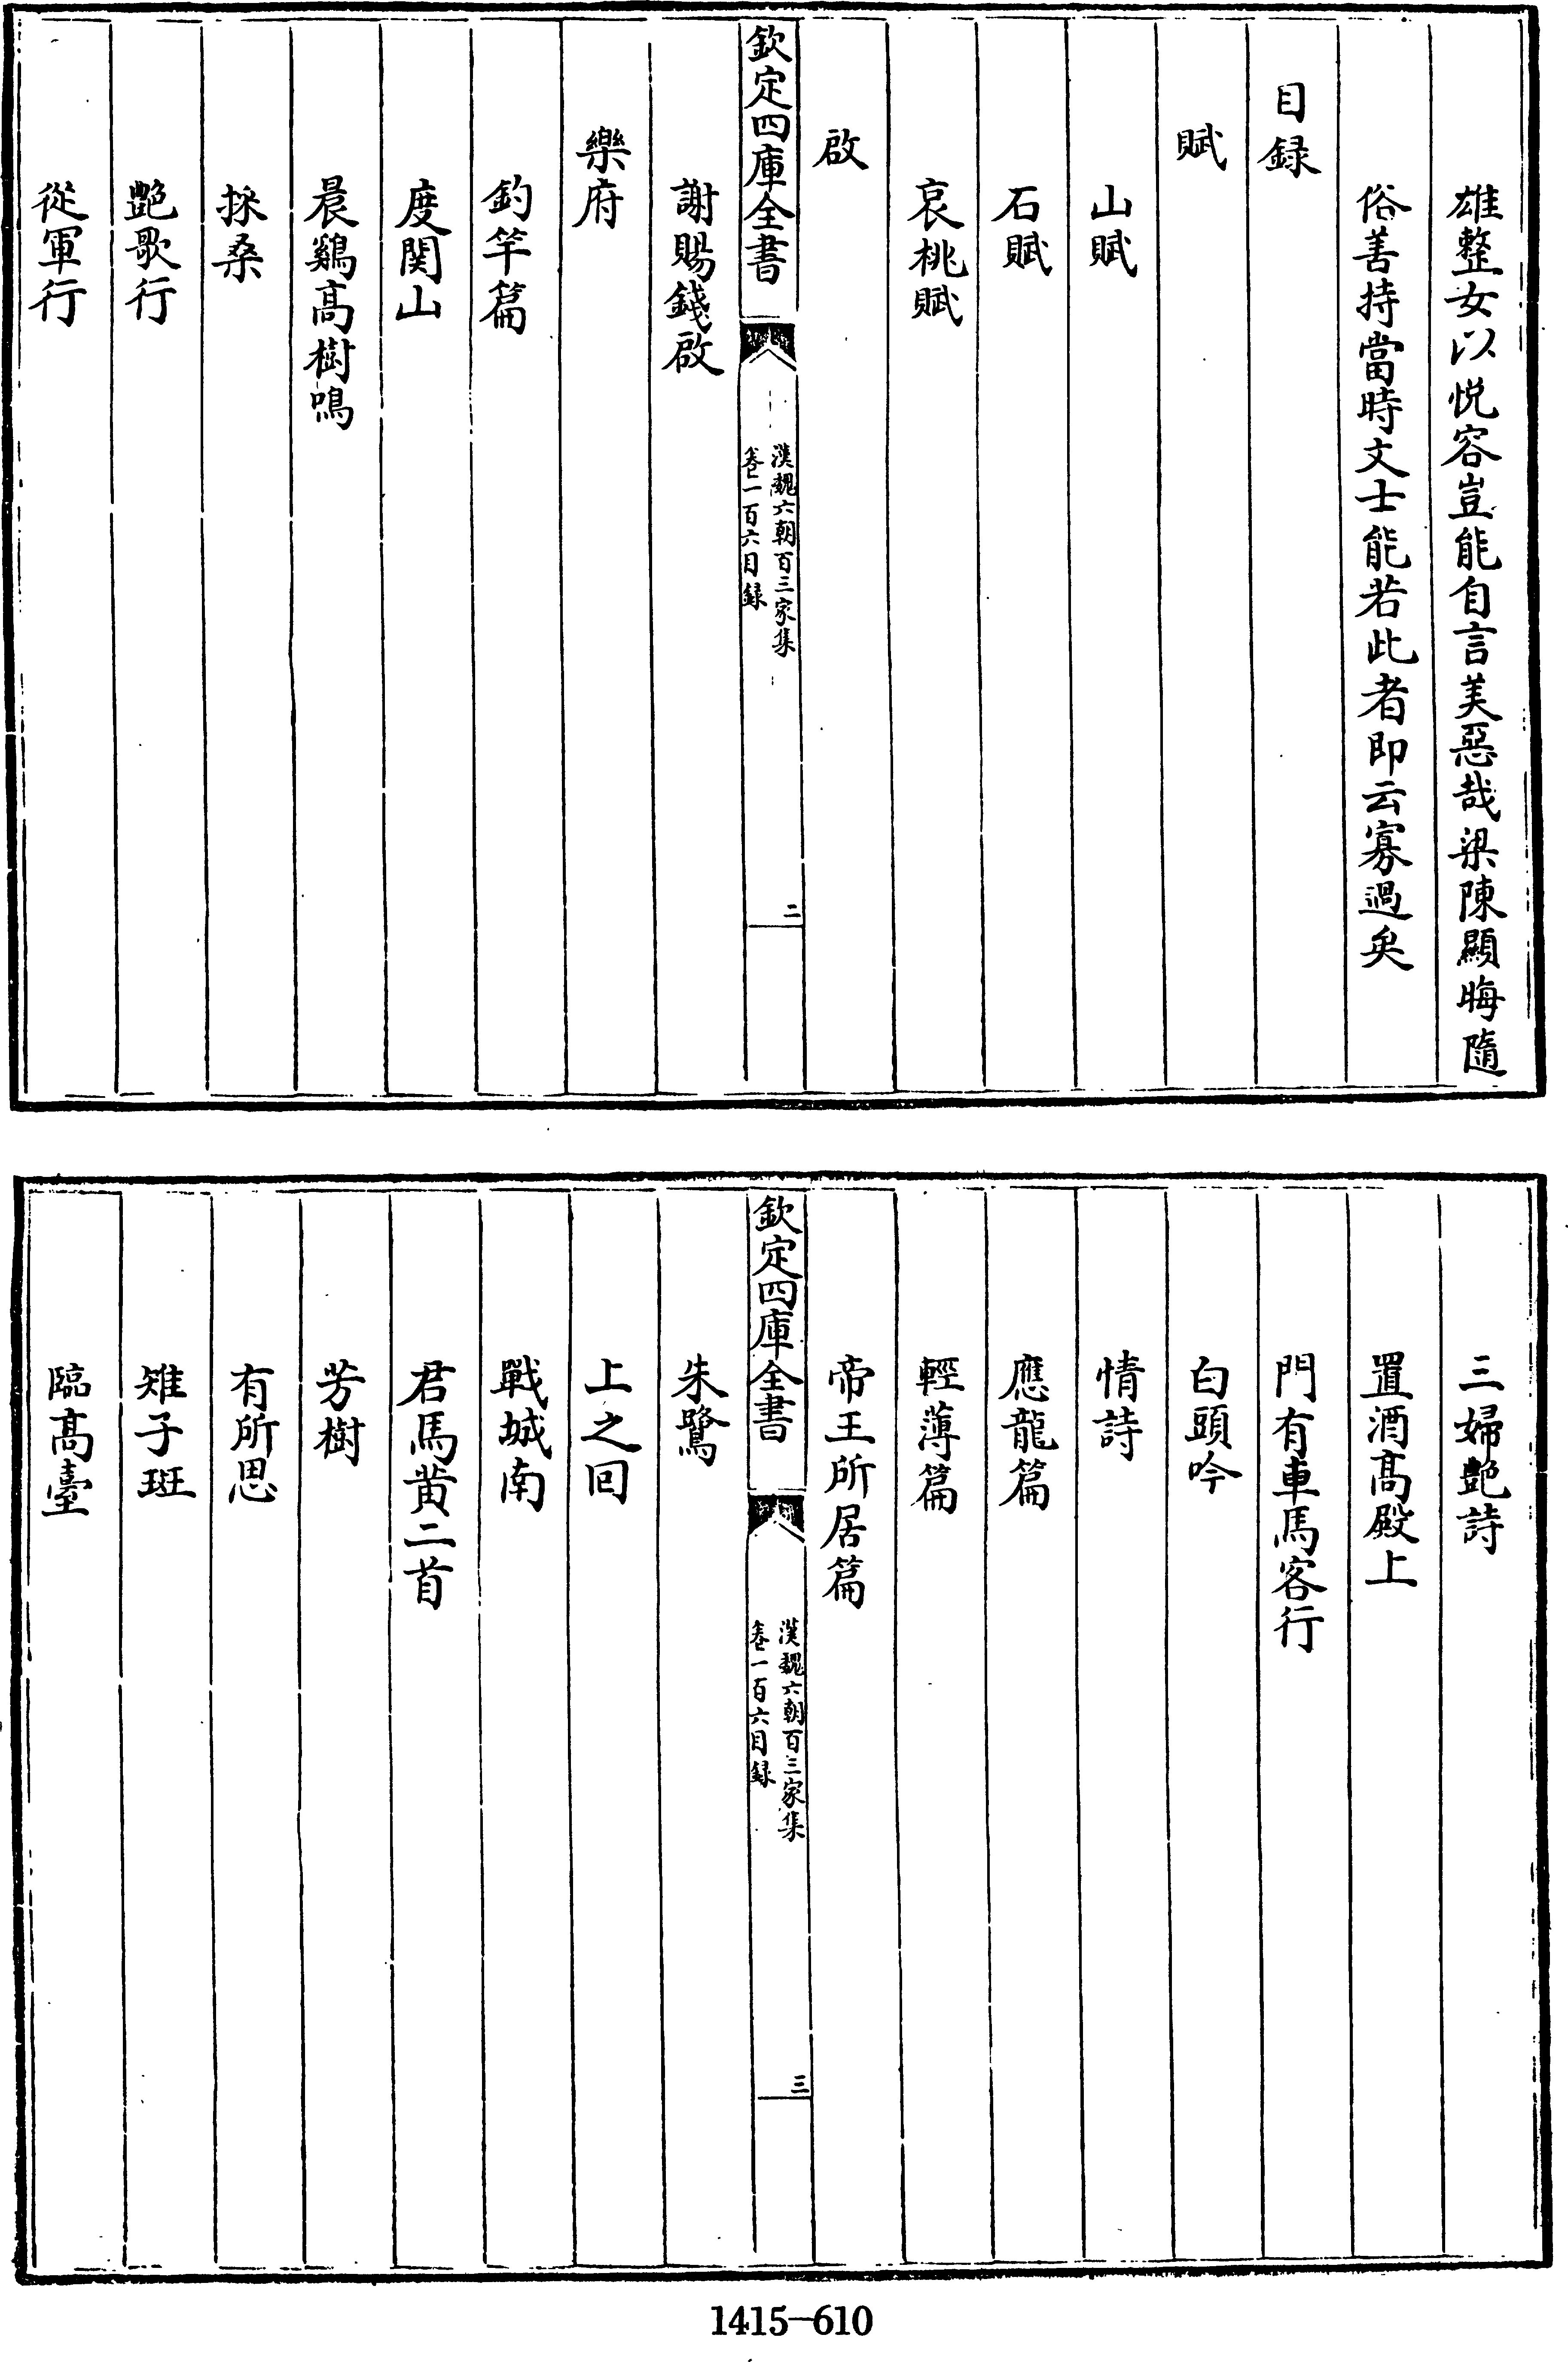 雄整女以悅容豈能自言美惡哉梁陳顯晦隨
俗善持當時文士能若此者即云寡過矣
目録
賦
山賦
石賦
哀桃賦
啟
欽定四庫全書
漢魏六朝百三家集
卷一百六目録
二
謝賜錢啟
樂府
釣竿篇
度関山
晨鷄高樹鳴
採桑
艶歌行
從軍行
三婦艶詩
置酒髙殿上
門有車馬客行
白頭吟
情詩
應龍篇
輕薄篇
帝王所居篇
欽定四庫全書
漢魏六朝百三家集
卷一百六目録
三
朱鷺
上之回
戰城南
君馬黄二首
芳樹
有所思
雉子班
臨髙臺
1415-610